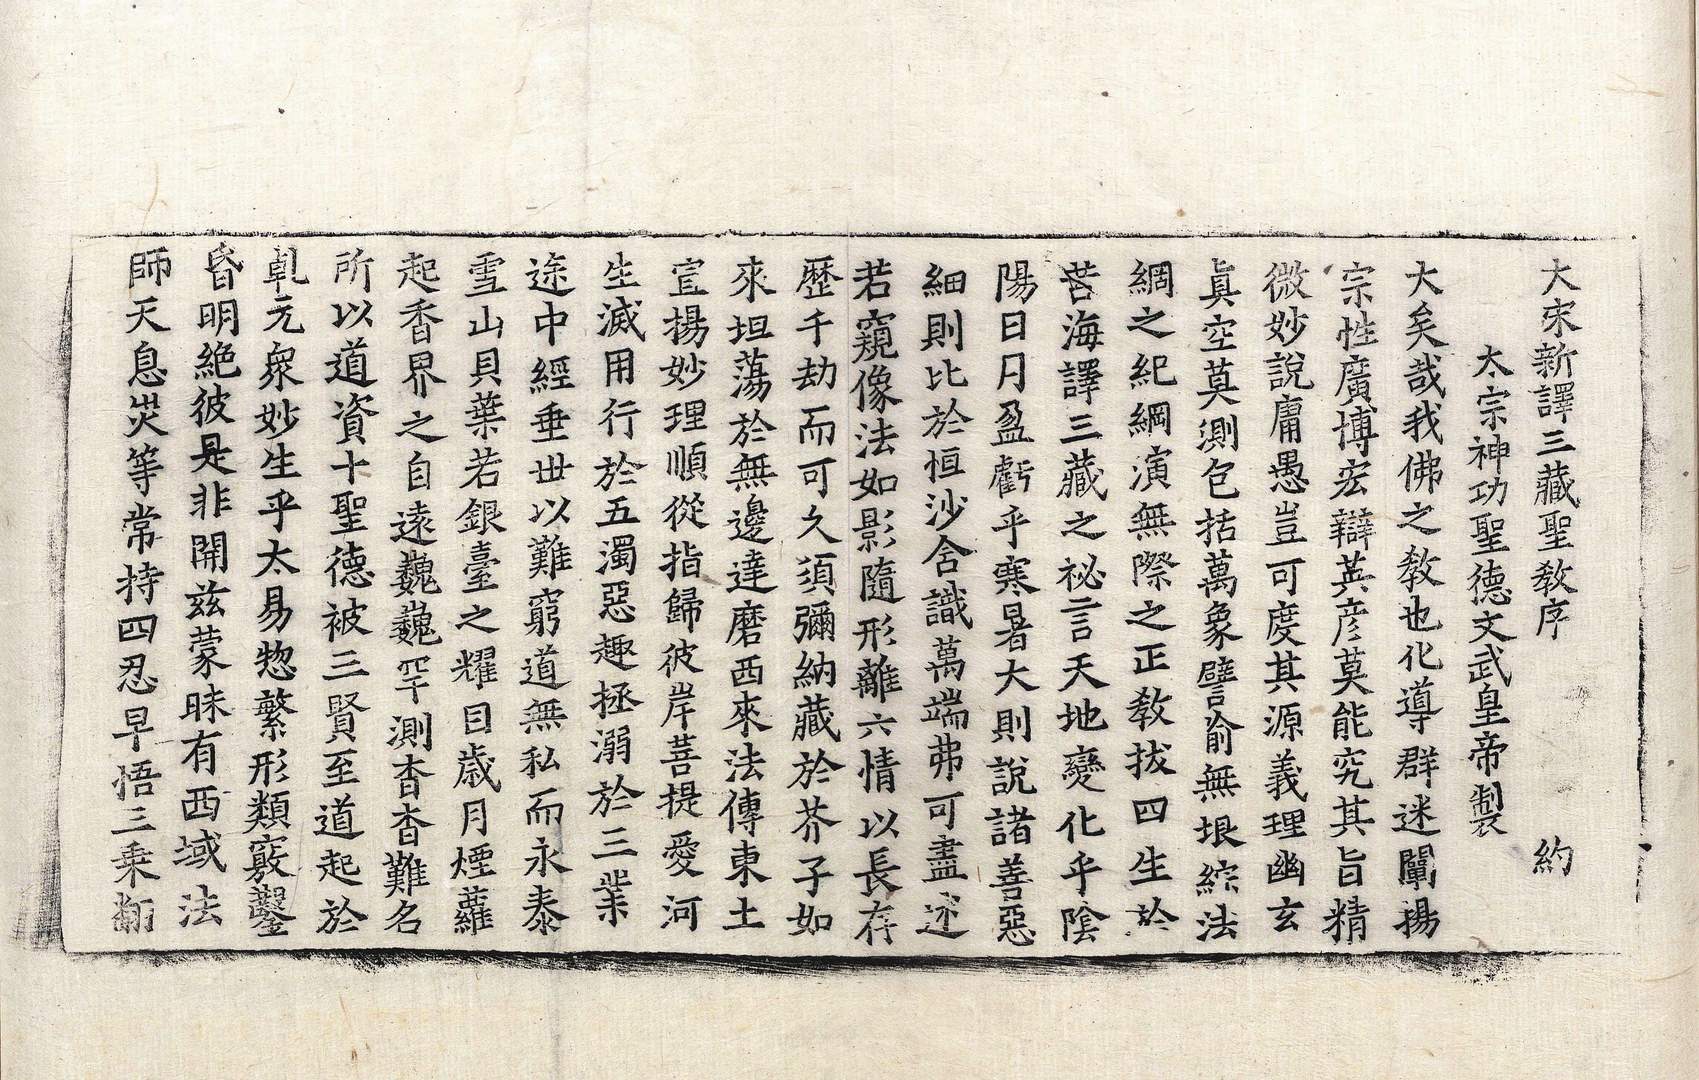 大宋新譯三藏聖教序 約
太宗神功聖德文武皇帝製
大矣哉我佛之教也化導群迷闡揚
宗性廣博宏辯英彦莫能究其旨精
微妙說庸愚豈可度其源義理幽玄
真空莫測包括萬象譬喻無垠綜法
網之紀綱演無際之正教拔四生於
苦海譯三藏之祕言天地變化乎陰
陽日月盈虧乎寒暑大則說諸善惡
細則比於恒沙含識萬端弗可盡述
若窺像法如影隨形離六情以長存
歷千劫而可久須彌納藏於芥子如
來坦蕩於無邊達磨西來法傳東土
宣揚妙理順從指歸彼岸菩提愛河
生滅用行於五濁惡趣拯溺於三業
途中經垂世以難窮道無私而永泰
雪山貝葉若銀臺之耀目歲月煙蘿
起香界之自遠巍巍罕測杳杳難名
所以道資十聖德被三賢至道起於
乹元衆妙生乎太易惣繁形類竅鑿
昏明絶彼是非開茲蒙昧有西域法
師天息灾等常持四忍早悟三乘翻